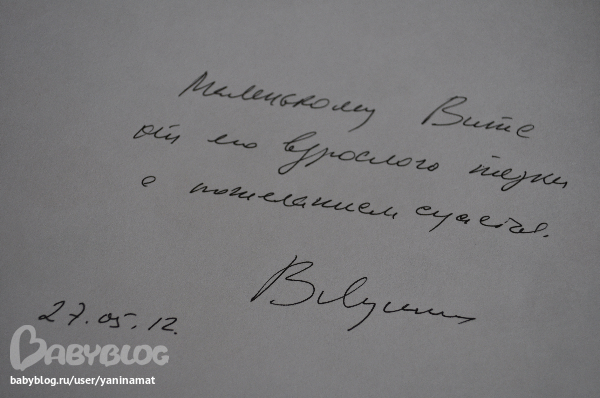 Маленькому Вите
от его взрослого тезки
с пожеланием счастья.
27.05.12.
BABYBLOG
babyblog.ru/user/yaninamat